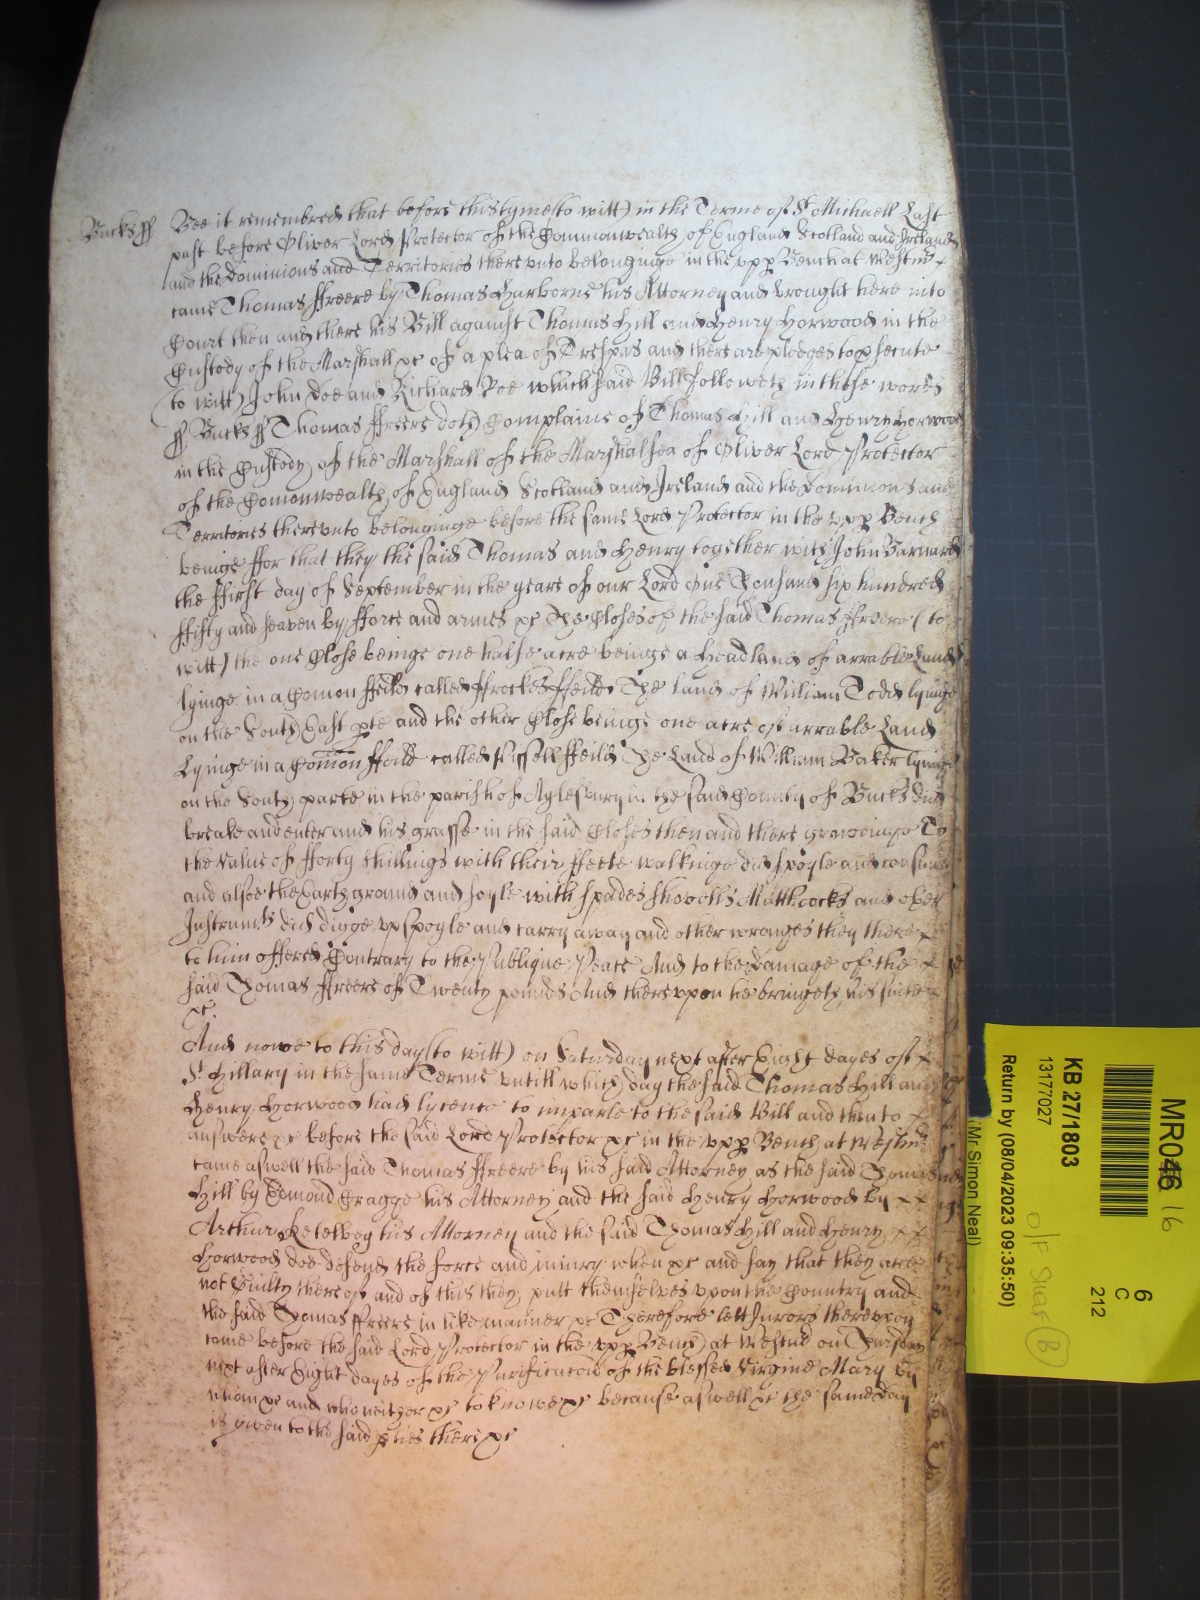 Bucks ss Bee it remembred that before this tyme (to witt) in the Terme of St Michaell Last
past before Oliver Lord Protector of the Commonwealth of England Scotland and Ireland
and the Dominions and Territories thereunto belonginge in the upp Bench at Westm
came Thomas ffreere by Thomas Harborne his Attorney and brought here into
Court then and there his Bill against Thomas Hill and Henry Horwood in the
Custody of the Marshall &c of a plea of Trespas and there are pledges to psecute
(to witt) John Doe and Richard Roe which said Bill followeth in these words
ss Bucks ss Thomas ffreere doth Complaine of Thomas Hill and Henry Horwood
in the Custody of the Marshall of the Marshalsea of Oliver Lord Protector
of the Comonwealth of England Scotland and Ireland and the Dominions and
Territories thereunto belonginge before the same Lord Protector in the upp Bench
beinge ffor that they the said Thomas and Henry together with John Barnard
the ffirst day of September in the yeare of our Lord One Thousand six hundred
ffifty and seaven by fforce and armes &c The Closes of the said Thomas ffreere (to
witt) the one Close beinge one halfe acre beinge a headland of arrable Land
lyinge in a Comon ffeild called ffrockes ffeild The land of William Todd lyinge
on the South East pte and the other Close beinge one acre of arrable Land
Lyinge in a Comon ffeild called ffeild The Land of William Baker lyinge
on the South parte in the parish of Aylesbury in the said County of Bucks did
breake and enter and his grasse in the said Closes then and there groweinge To
the value of fforty shillings with their ffeete walkinge did spoyle and consume
and alsoe the Earth ground and soyle with spades shovells Matthcocks and other
Instrumts did digge up spoyle and carry away and other wronges they there
to him offered Contrary to the Publique Peace And to the damage of the
said Thomas ffreere of Twenty pounds And thereupon he bringeth his suite
&c.
And nowe to this day (to witt) on Saturday next after Eight dayes of
St Hillary in the same Terme untill which day the said Thomas Hill and
Henry Horwood had lycence to imparle to the said Bill and then to
answere &c before the said Lord Protector &c in the upp Bench at Westm
came aswell the said Thomas ffreere by his said Attorney as the said Thomas
Hill by Edmond Cragge his Attorney and the said Henry Horwood by
Arthur his Attorney and the said Thomas Hill and Henry
Horwood doe defend the force and iniury when &c and say that they are
not Guilty thereof and of this they putt themselves upon the Country and
the said Thomas ffreere in like manner &c Therefore lett Jurors thereupon
come before the said Lord Protector in the upp Bench at Westm on Thursday
next after Eight dayes of the Purificacion of the blessed Virgine Mary by
whom &c and who neither &c to knowe &c because aswell &c the same day
is given to the said pties there &c
MR046 16
6
C
212
KB 27/1803
13177027
Return by (08/04/2023 09:35:50)
(Mr Simon Neal)
O/F
B